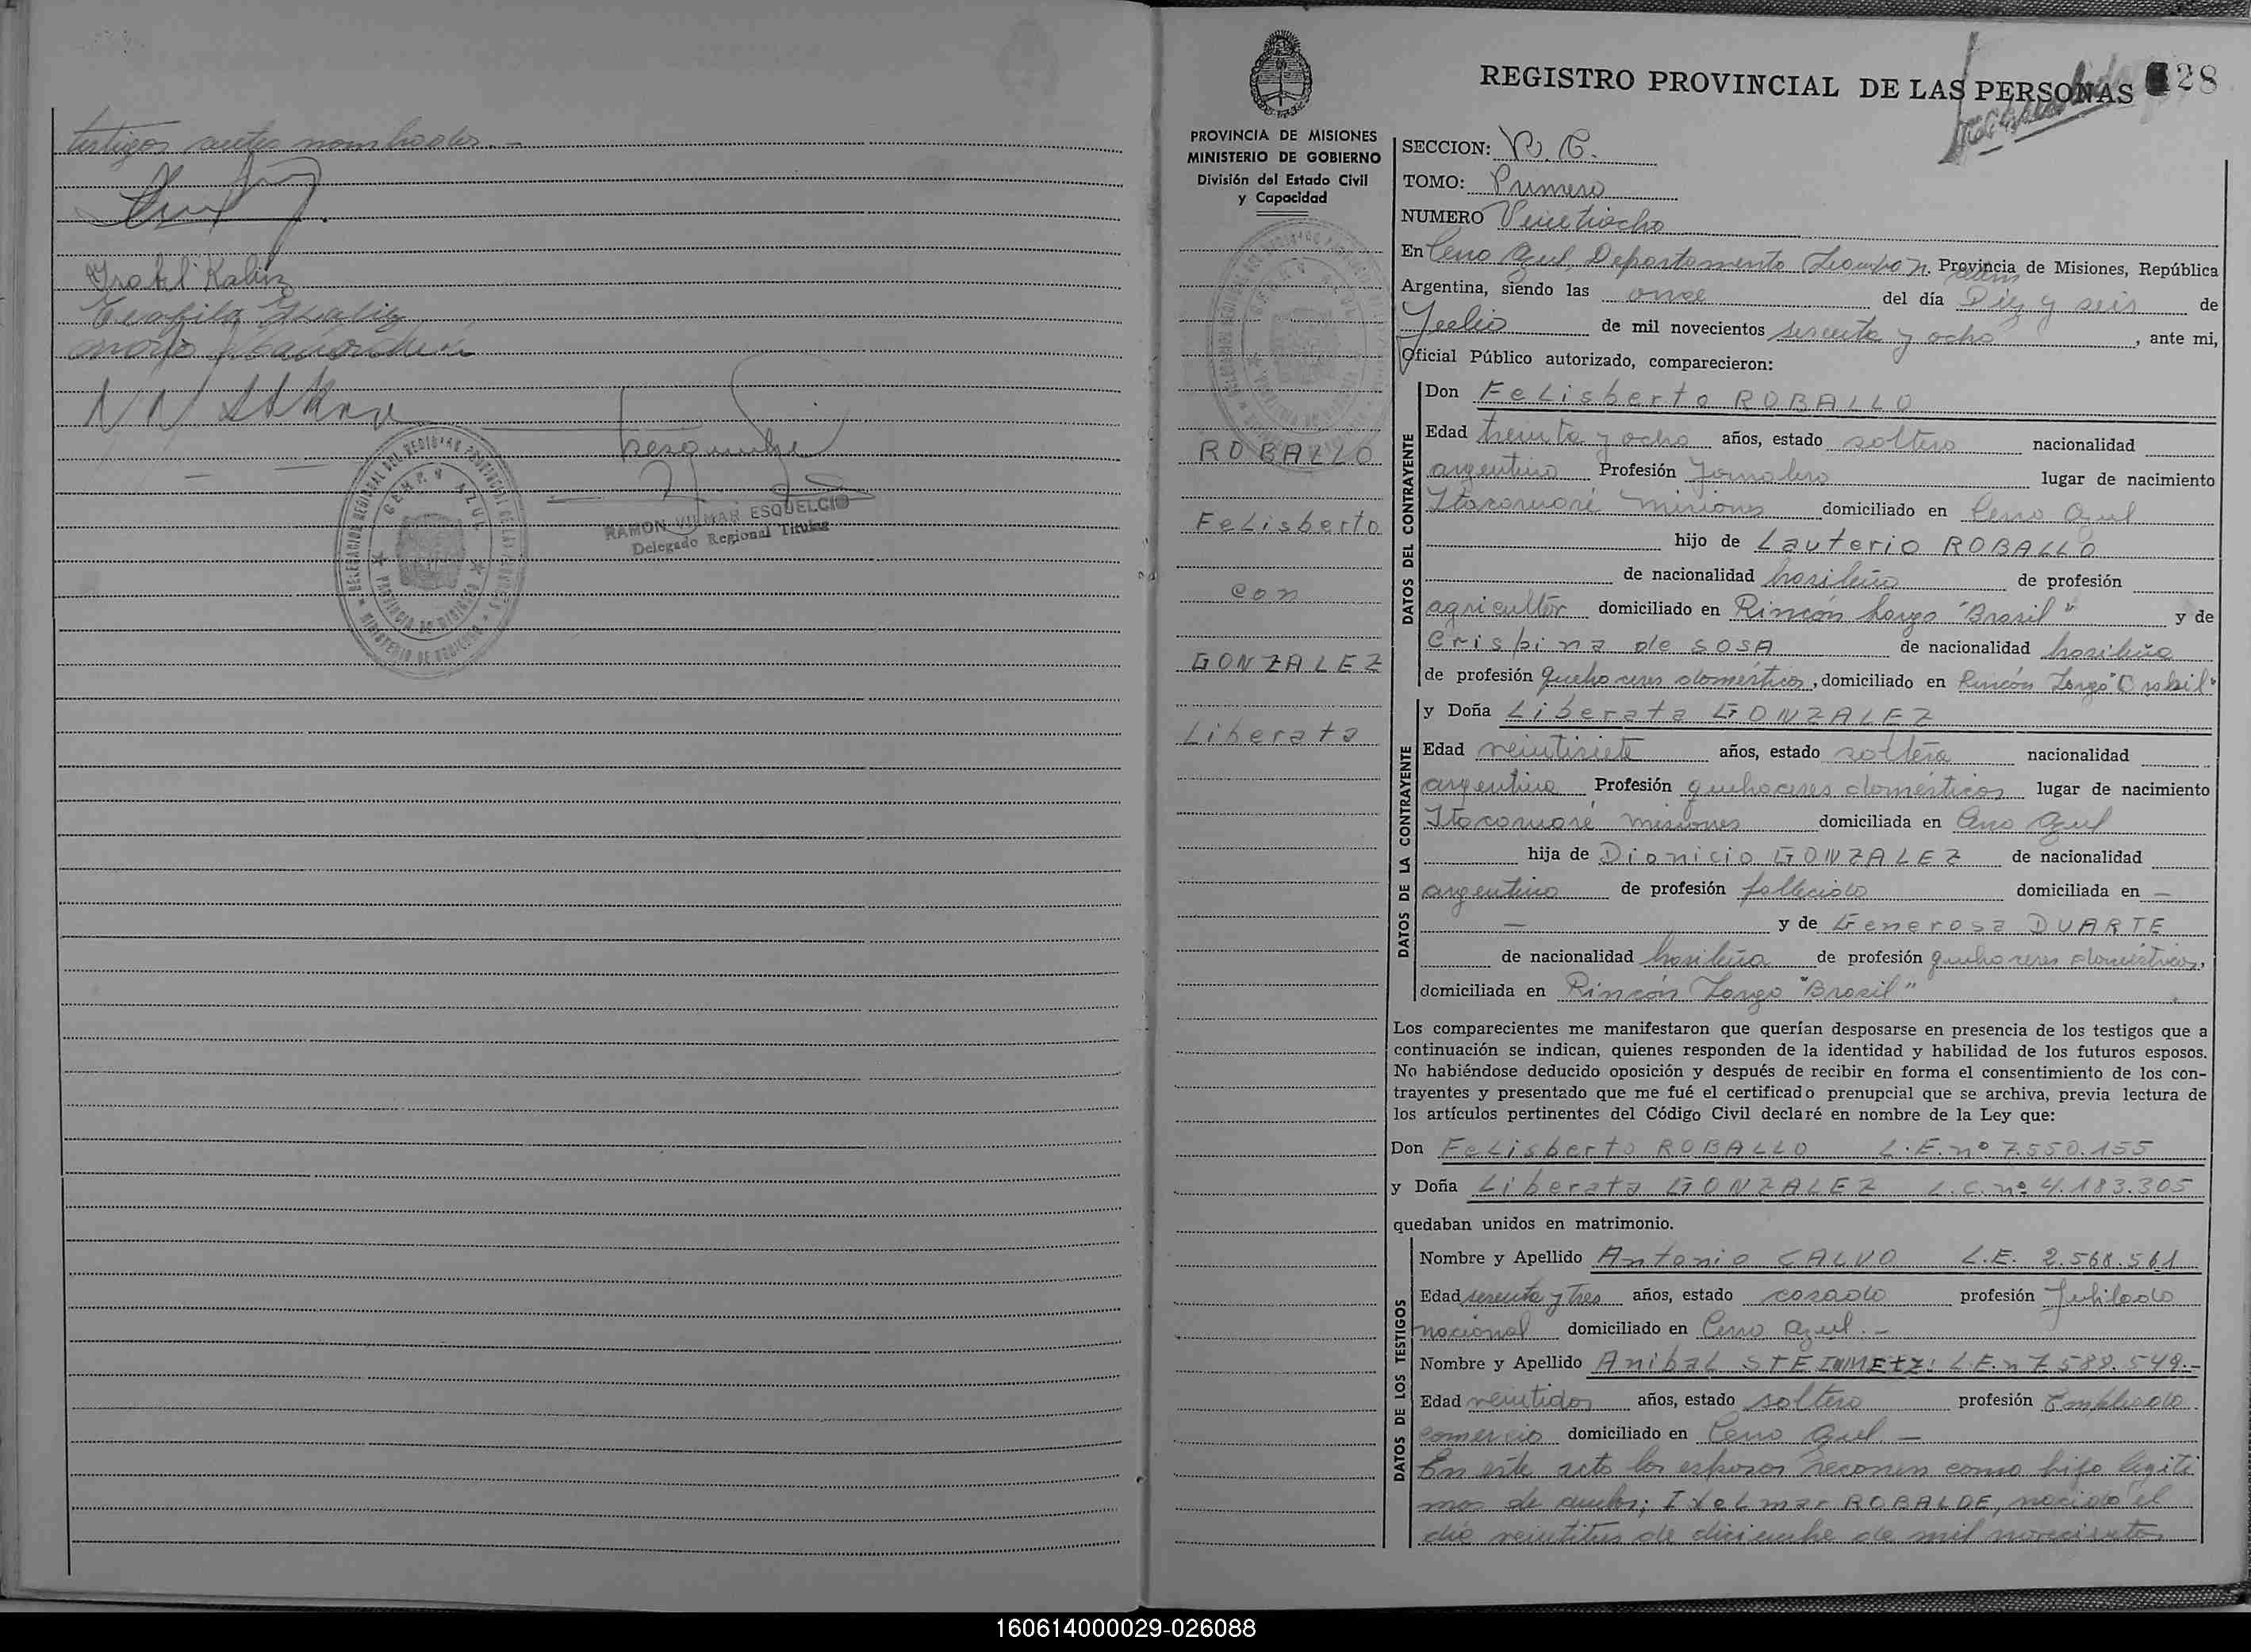 testigos antes nombrados.-
Isabel Kaliz
RAMON VILMAR ESQUELCIO
Delegado Regional Titular
DELEGACION REGIONAL DEL REGISTRO PROVINCIAL DE LAS PERSONAS
CERRO AZUL
PROVINCIA DE MISIONES
MINISTERIO DE GOBIERNO
REGISTRO PROVINCIAL DE LAS PERSONAS 28
PROVINCIA DE MISIONES
MINISTERIO DE GOBIERNO
División del Estado Civil
y Capacidad
ROBALLO
Felisberto
con
GONZALEZ
Liberata
SECCION:
TOMO: Primero
NUMERO Veintiocho
En Cerro Azul, Departamento Leandro N. Alem Provincia de Misiones, República
Argentina, siendo las once del día Diez y seis de
Julio de mil novecientos sesenta y ocho, ante mi,
Oficial Público autorizado, comparecieron:
DATOS DEL CONTRAYENTE
Don Felisberto ROBALLO
Edad treinta y ocho años, estado soltero nacionalidad
argentino Profesión Jornalero lugar de nacimiento
Itacaruaré Misiones domiciliado en Cerro Azul
hijo de Lauterio ROBALLO
de nacionalidad brasileño de profesión
agricultor domiciliado en Rincón Largo "Brasil" y de
Crispina de SOSA de nacionalidad brasileña
de profesión quehaceres domésticos, domiciliado en Rincón Largo "Brasil"
DATOS DE LA CONTRAYENTE
y Doña Liberata GONZALEZ
Edad veintisiete años, estado soltera nacionalidad
argentina Profesión quehaceres domésticos lugar de nacimiento
Itacaruaré Misiones domiciliada en Cerro Azul
hija de Dionicio GONZALEZ de nacionalidad
argentino de profesión fallecido domiciliada en -
- y de Generosa DUARTE
de nacionalidad brasileña de profesión quehaceres domésticos,
domiciliada en Rincón Largo "Brasil"
Los comparecientes me manifestaron que querían desposarse en presencia de los testigos que a
continuación se indican, quienes responden de la identidad y habilidad de los futuros esposos.
No habiéndose deducido oposición y después de recibir en forma el consentimiento de los con-
trayentes y presentado que me fué el certificado prenupcial que se archiva, previa lectura de
los artículos pertinentes del Código Civil declaré en nombre de la Ley que:
Don Felisberto ROBALLO L.E. nº 7.550.155
y Doña Liberata GONZALEZ L.C. nº 4.183.305
quedaban unidos en matrimonio.
DATOS DE LOS TESTIGOS
Nombre y Apellido Antonio CALVO L.E. 2.568.561
Edad sesenta y tres años, estado casado profesión Jubilado
nacional domiciliado en Cerro Azul.-
Nombre y Apellido Anibal STEINMETZ: L.E. n 7.589.549.-
Edad veintidos años, estado soltero profesión Empleado
comercio domiciliado en Cerro Azul.-
En este acto los esposos reconen como hijo legiti
mos de ambos; Idelmar ROBALDE, nacido el
día veintitres de diciembre de mil novecientos
160614000029-026088